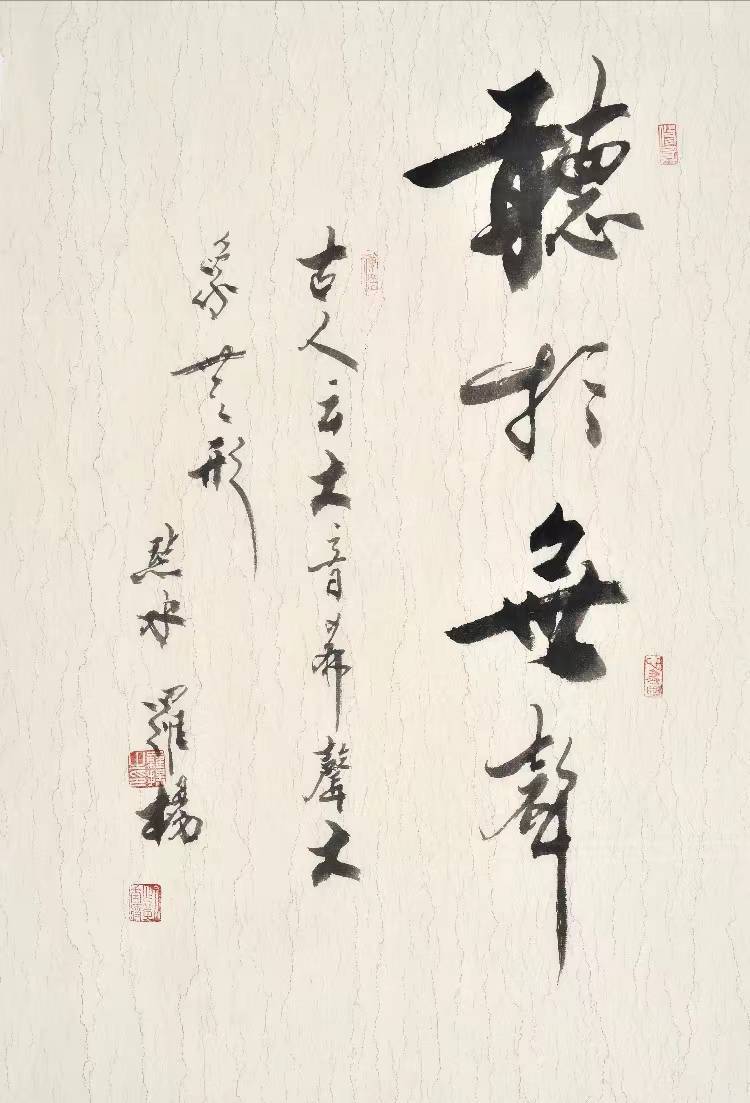 聽於無聲
古人云大音希聲大
象無形
點水 羅楊